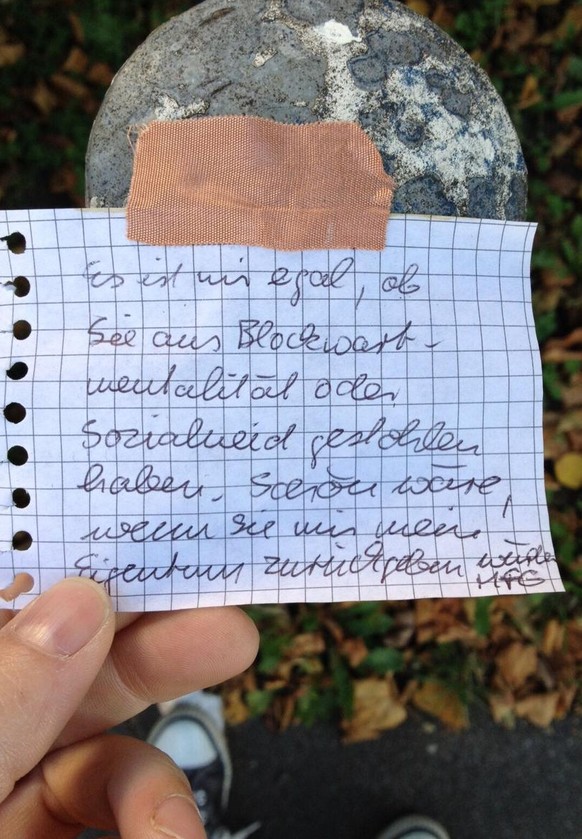 Es ist mir egal, ob
Sie aus Blockwart-
mentalität oder
Sozialneid gestohlen
haben. Schön wäre,
wenn Sie mir mein
Eigentum zurückgeben würden
MFG